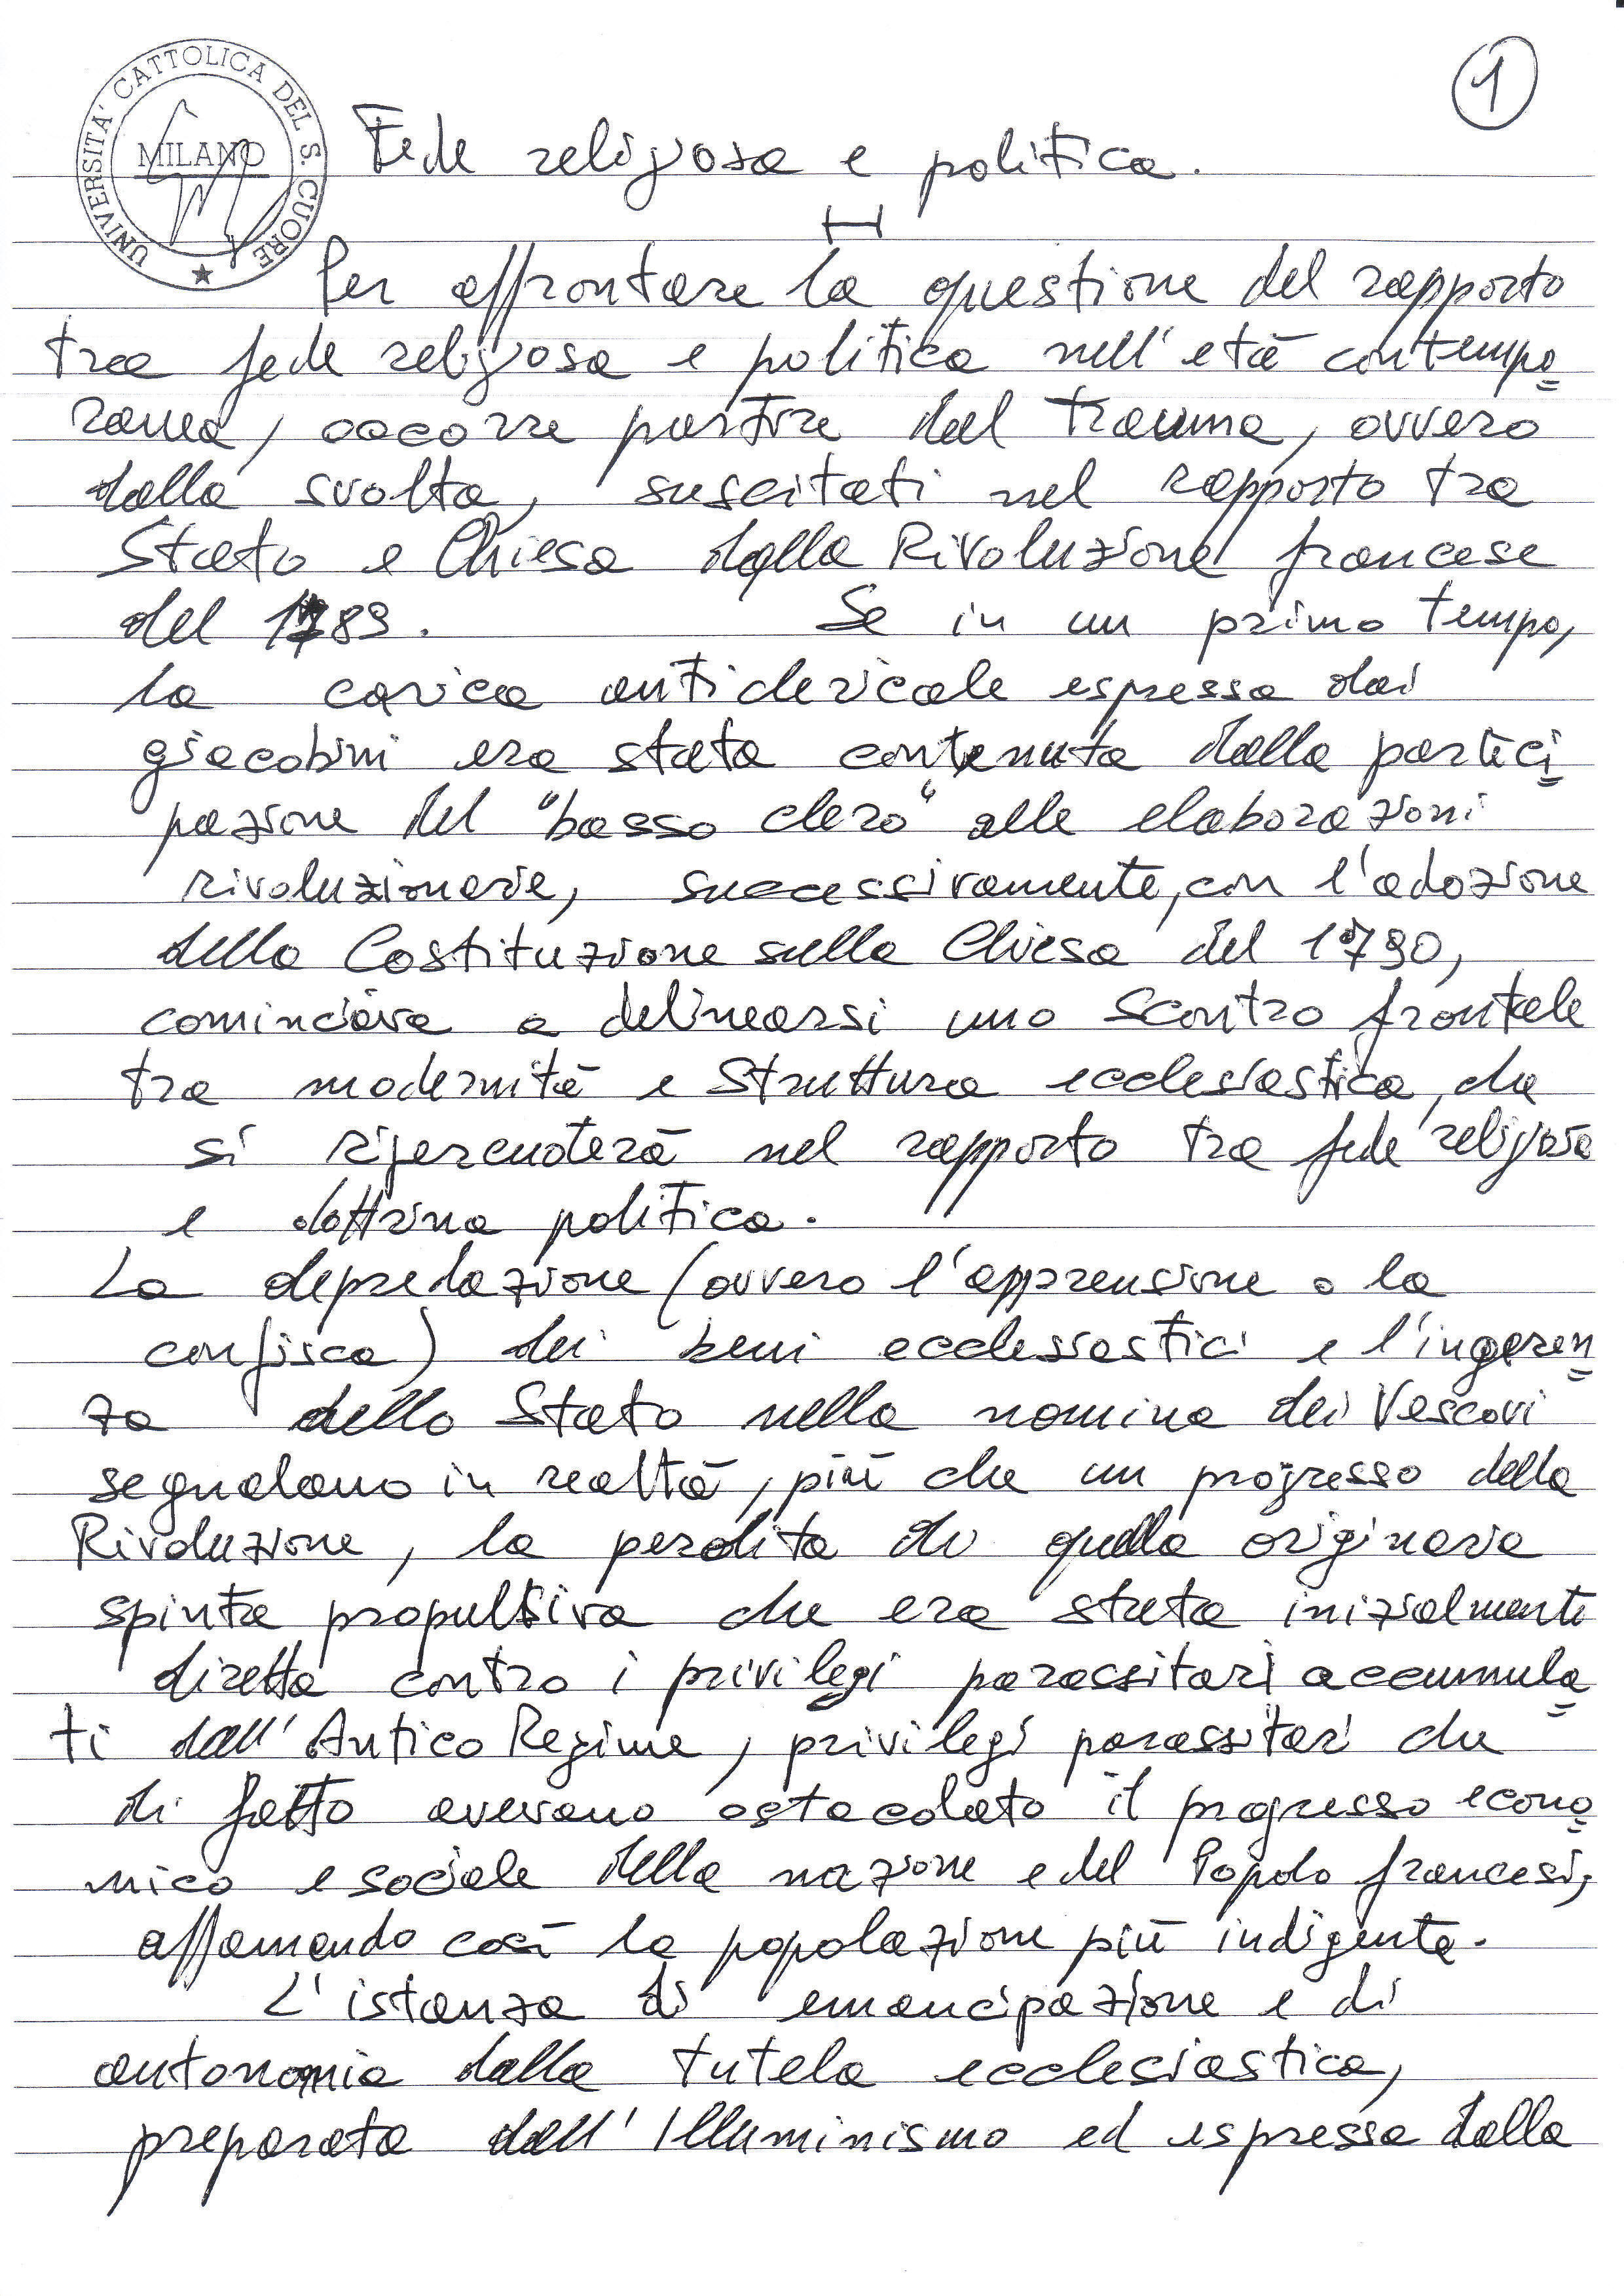 1
UNIVERSITA' CATTOLICA DEL S. CUORE
MILANO
Fede religiosa e politica.
Per affrontare la questione del rapporto
tra fede religiosa e politica nell'età contempo
ranea, occorre partire dal trauma, ovvero
dalla svolta, suscitati nel rapporto tra
Stato e Chiesa dalla Rivoluzione francese
del 1789. Se in un primo tempo,
la carica anticlericale espressa dai
giacobini era stata contenuta dalla parteci
pazione del "basso clero" alle elaborazioni
rivoluzionarie, successivamente, con l'adozione
della Costituzione sulla Chiesa del 1790,
cominciava a delinearsi uno scontro frontale
tra modernità e struttura ecclesiastica, che
si ripercuoterà nel rapporto tra fede religiosa
e dottrina politica.
La depredazione (ovvero l'apprensione o la
confisca) dei beni ecclesiastici e l'ingeren
za dello Stato nella nomina dei Vescovi
segnalano in realtà, più che un progresso della
Rivoluzione, la perdita di quella originaria
spinta propulsiva che era stata inizialmente
diretta contro i privilegi parassitari accumula
ti dall'Antico Regime, privilegi parassitari che
di fatto avevano ostacolato il progresso econo
mico e sociale della nazione e del Popolo francesi,
affamando così la popolazione più indigente.
L'istanza di emancipazione e di
autonomia dalla tutela ecclesiastica,
preparata dall'Illuminismo ed espressa dalla